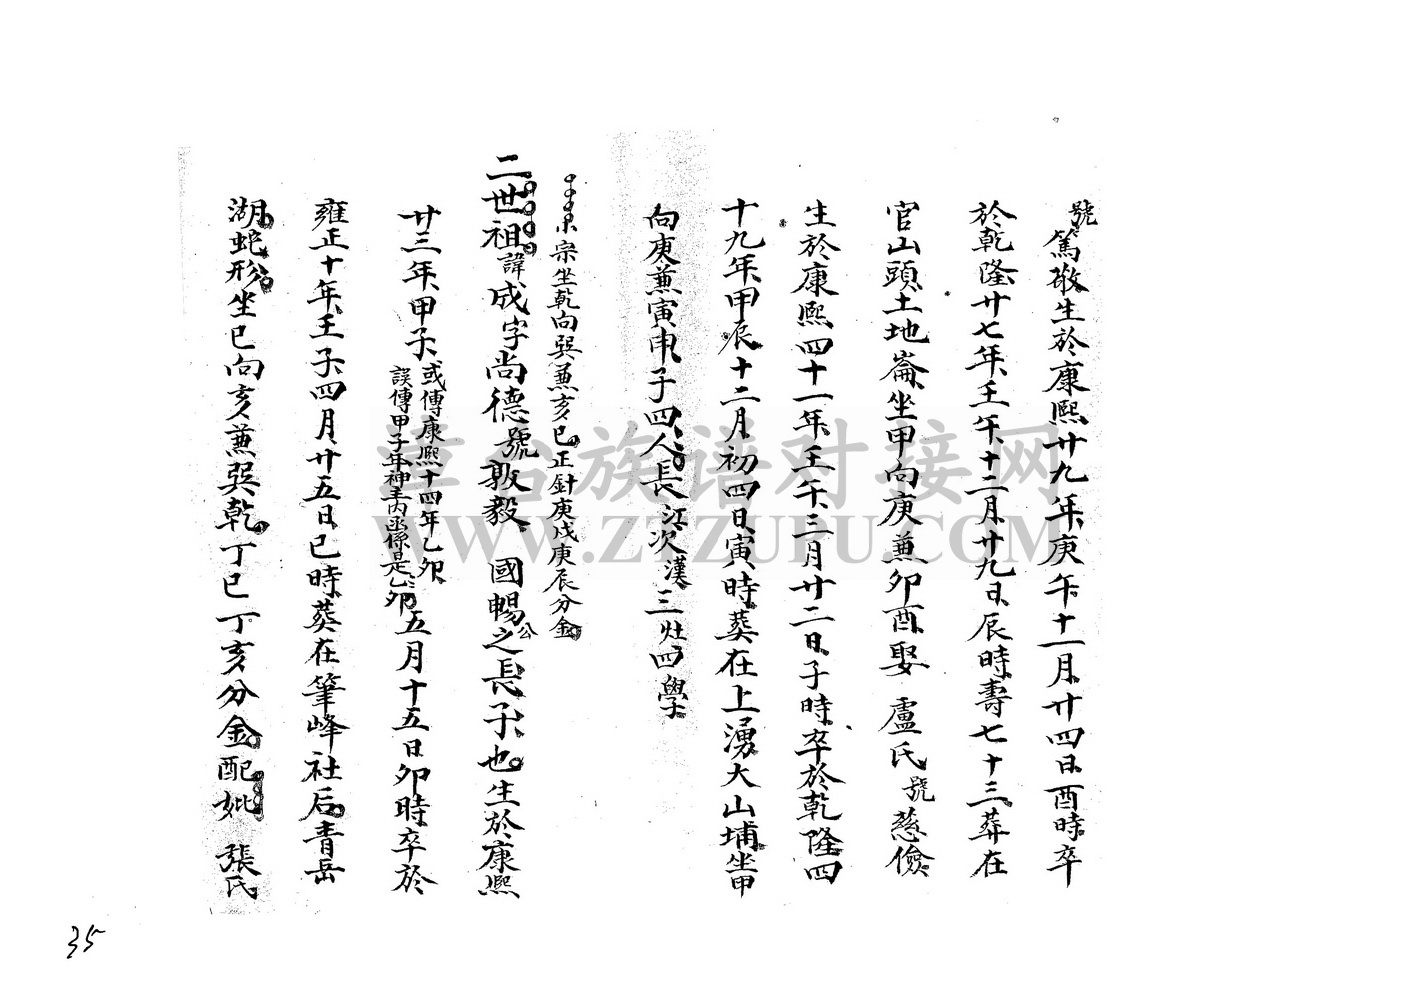 號篤敬生於康熙廿九年庚午十一月廿四日酉時卒
於乾隆廿七年壬午十二月廿九日辰時壽七十三葬在
官山頭土地崙坐甲向庚兼卯酉娶盧氏號慈儉
生於康熙四十一年壬午三月廿二日子時卒於乾隆四
十九年甲辰十二月初四日寅時葬在上湧大山埔坐甲
向庚兼寅申子四人長江次漢三灶四學
宗坐乾向巽兼亥巳正針庚戌庚辰分金
二世祖諱成字尚德號敦毅 國暢公之長子也生於康熙
廿三年甲子或傳康熙十四年乙卯誤傳甲子年神主內函係是乙卯五月十五日卯時卒於
雍正十年壬子四月廿五日巳時葬在筆峰社后青岳
湖蛇形坐巳向亥兼巽乾丁巳丁亥分金配妣 張氏
35
章台族谱对接网
WWW.ZTZUPU.COM